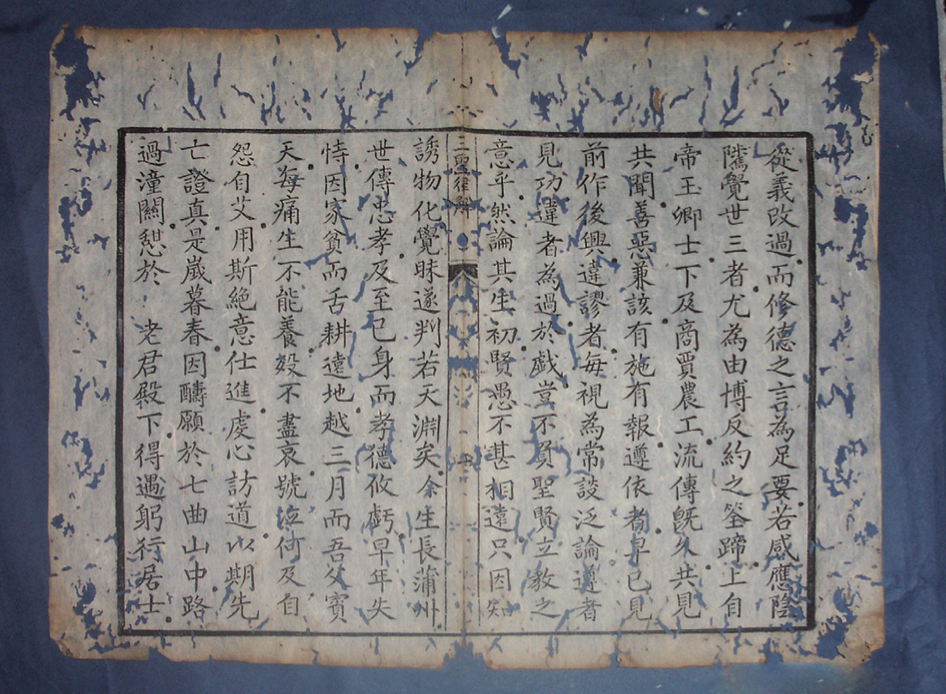 從義改過而修德之言為足要若感應陰
隲覺世三者尤為由博反約之筌蹄上自
帝王卿士下及商賈農工流傳旣久共見
共聞善惡兼該有施有報遵依者早已見
前作後興違謬者每視為常談泛論遵者
見功違者為過於戲豈不負聖賢立教之
意乎然論其生初賢愚不甚相遠只因知
三聖律解
誘物化覺昧遂判若天淵矣余生長蒲州
世傳忠孝及至己身而孝德攸虧早年失
恃因家貧而舌耕遠地越三月而吾父賓
天每痛生不能養歿不盡哀號泣何及自
怨自艾用斯絕意仕進虔心訪道以期先
亡證真是嵗暮春因酬願於七曲山中路
過潼關憇於 老君殿下得遇躬行居士